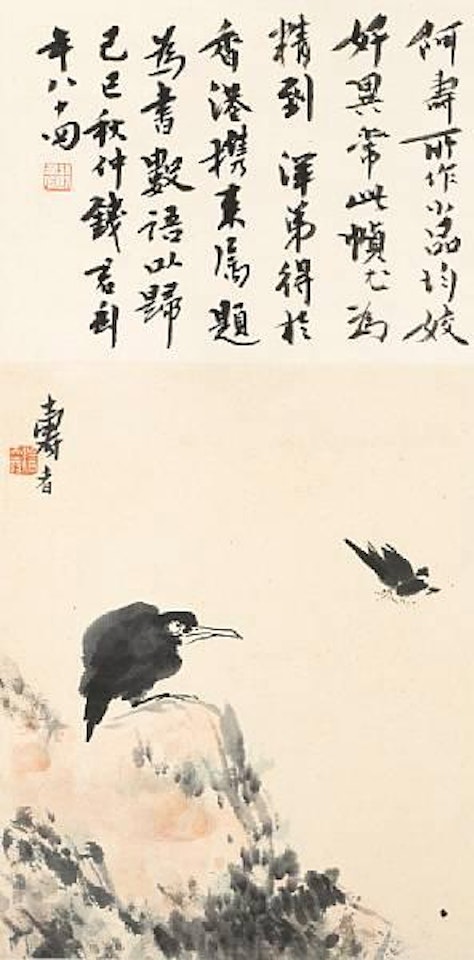 阿壽所作小品均姣
妍異常此幀尤為
精到 澤弟得於
香港携来属題
為書數語以歸
己巳秋仲錢君匋
年八十四
壽者